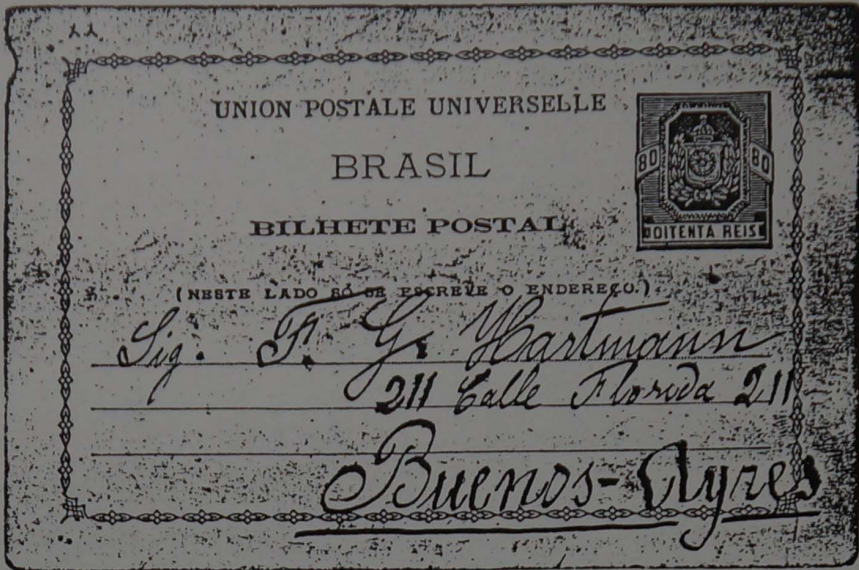 UNION POSTALE UNIVERSELLE
BRASIL
BILHETE POSTAL
80 80
OITENTA REIS
(NESTE LADO SÓ SE ESCREVE O ENDEREÇO.)
Sig. F. G. Hartmann
211 Calle Florida 211
Buenos-Ayres